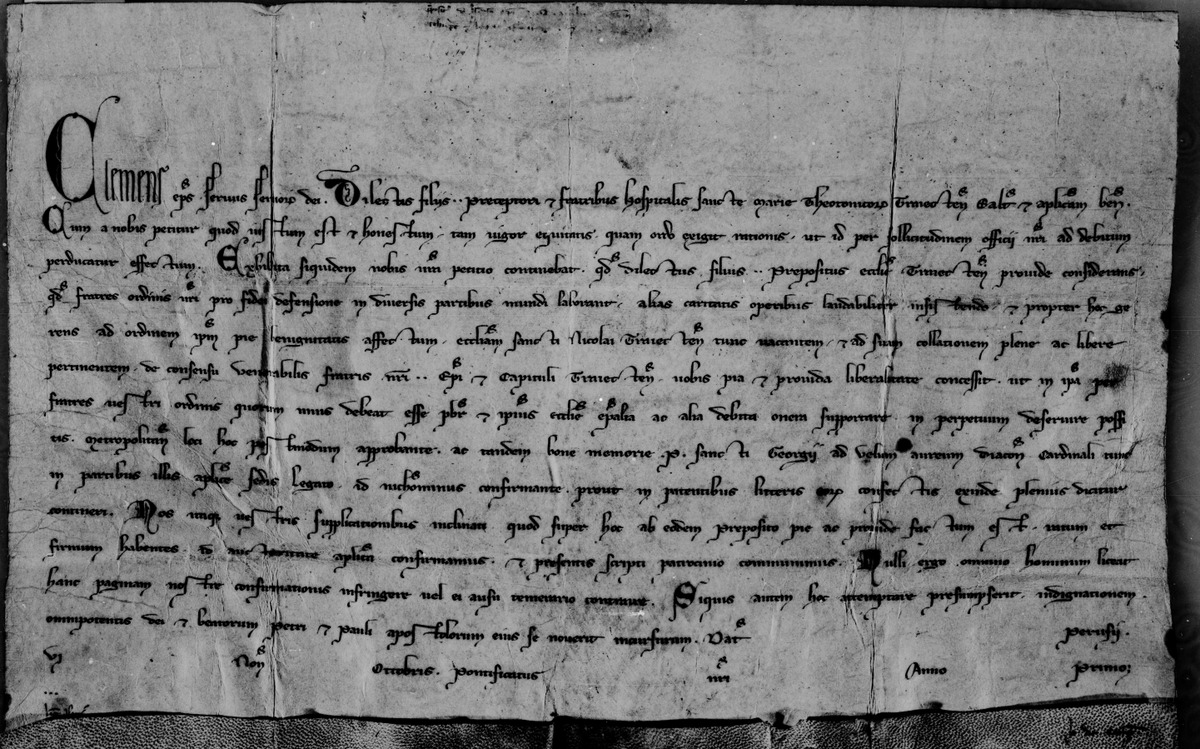 Clemens ep̄s servus servor̄ dei. Dilectis filijs .. Preceptori & fratribus hospitalis sancte marie Theotonicor̄ Traiecteñ Salt̄ & aplicam ben̄.
Cum a nobis petitur quod iustum est & honestum, tam vigor equitatis, quam ordo exigit rationis, ut id per sollicitudinem officij nr̄i ad debitum
perducatur effectum. Exhibita siquidem nobis vr̄a petitio continebat, qd̄ dilectus filius .. Prepositus ecclīe Traiecteñ provide considerans,
qd̄ fratres ordinis vr̄i pro fidei defensione in diversis partibus mundi laborant, alias caritatis operibus laudabiliter insistendo, & propter hoc ge
rens ad ordinem ip̄m pie benignitatis affectum, eccliam sancti Nicolai Traiecteñ tunc vacantem, & ad suam collationem plene ac libere
pertinentem, de consensu venerabilis fratris nr̄i .. Ep̄i & Capituli Traiecteñ, vobis pia & provida liberalitate concessit, ut in ip̄a per
fratres vestri ordinis quorum unus debeat esse pb̄r & ipius ecclīe ep̄alia ac alia debita onera supportare, in perpetuum deservire possi
tis, metropolitan̄ loci hoc postmodum approbante, ac tandem bone memorie .P. sancti Georgij ad velum aureum diacon̄ Cardinali tunc
in partibus illis aplic̄e sedis legato, id nichōminus confirmante, prout in patentibus litteris eor̄ confectis exinde plenius dicitur
contineri. Nos itaq vestris supplicationibus inclinati quod super hoc ab eodem Preposito pie ac provide factum est, ratum et
firmum habentes, id auctoritate aplica confirmamus, & presentis scripti patrocinio communimus. Nulli ergo omnino hominum liceat
hanc paginam nostre confirmationis infringere vel ei ausu temerario contraire. Siquis autem hoc attemptare presumpserit, indignationem
omnipotentis dei & beatorum Petri & Pauli apostolorum eius se noverit incursurum. Dat̄ Perusij.
vj Non̄ Octobris. Pontificatus nr̄i Anno Primo